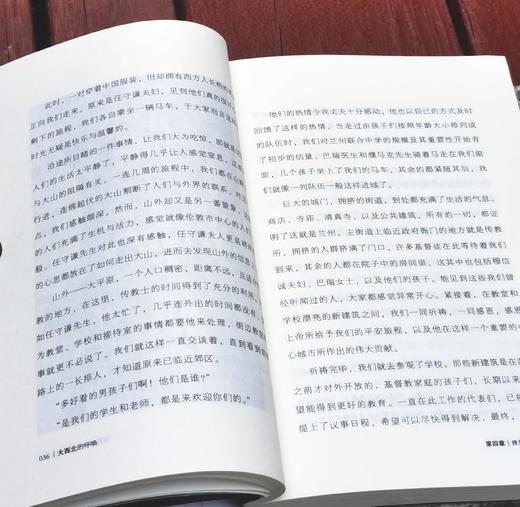 此时，一对穿着中国服装，但却拥有西方人长相的
正向我们走来。原来是任守谦夫妇，见到他们真的很
剩下的旅程，我们各自乘坐一辆马车，于大家而言
时光无疑是快乐与温馨的。
沿途所目睹的一件事情，让我们大为吃惊，那就是
人们的生活太平静了，平静得几乎让人感觉窒息。
与大山的阻隔有关。一连几周的旅程中，我们都在山
行进，连绵起伏的大山割断了人们与外界的联系，
点，我们感触颇深。然而，山外却又是另一番景象，
的人们充满了生机与活力，感觉就像伦敦市中心的人们
般。任守谦先生对此也深有感触，任守谦夫人更是将
的心思都放在了如何走出大山，进而去发现山外的
山外——大平原，一个人口稠密，距离不远，
教的地方。在这里，传教士的时间得到了充分的利用
如任守谦先生，他太忙了，几乎连外出的时间都没有，
为教堂、学校和接待室的事情都要他来处理，街边教
事就更不必说了。我们就这样一直交谈着，直到看到
路上的一长排人，才知道原来已临近郊区。
“多好看的男孩子们啊！他们是谁?”
“是我们的学生和老师，都是来欢迎你们的。”
036 | 大西北的呼唤
他们的热情令我丈夫十分感动，他也以自己的方式及时
回馈了这样的热情。当走过由孩子们按照年龄大小排列成
的队伍时，我们对兰州联合中学的规模及其重要性开始有
了初步的估量。巴瑞医生和濮马克先生骑着马走在我们前
面，几个孩子坐上了我们的马车，其余的都紧随其后，我
们就像一列队伍一般这样进城了。
巨大的城门，拥挤的街道，到处都充满了生活的气息。
商店、寺庙、清真寺，以及公共建筑，所有的一切，都证
明了这就是兰州。主街道上临近政府衙门的地方就是传教
所，拥挤的人群挤满了门口，许多基督徒在此等待着我们
到来，其余的人都在院子中的房间里，这其中也包括穆信
诚夫妇、巴瑞女士，以及他们的孩子。能见到这些我们曾
经听闻过的人，大家都感觉异常开心。紧接着，在教堂和
学校漂亮的新建筑之间，我们一同祈祷，一同感恩，感恩
上帝所给予我们的平安旅程，以及他在这样一个重要的
心城市所作出的伟大贡献。
祈祷完毕，我们就去参观了学校。那些新建筑是在
之前才对外开放的，基督教家庭的孩子们，长期以来
望能得到更好的教育。一直在此工作的代表们，已
提上了议事日程，希望可以尽快得到解决，最终，
第四章 |